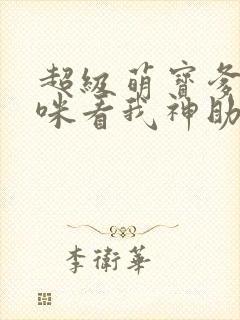 超级萌宝爹
咪看我神助
李衛華